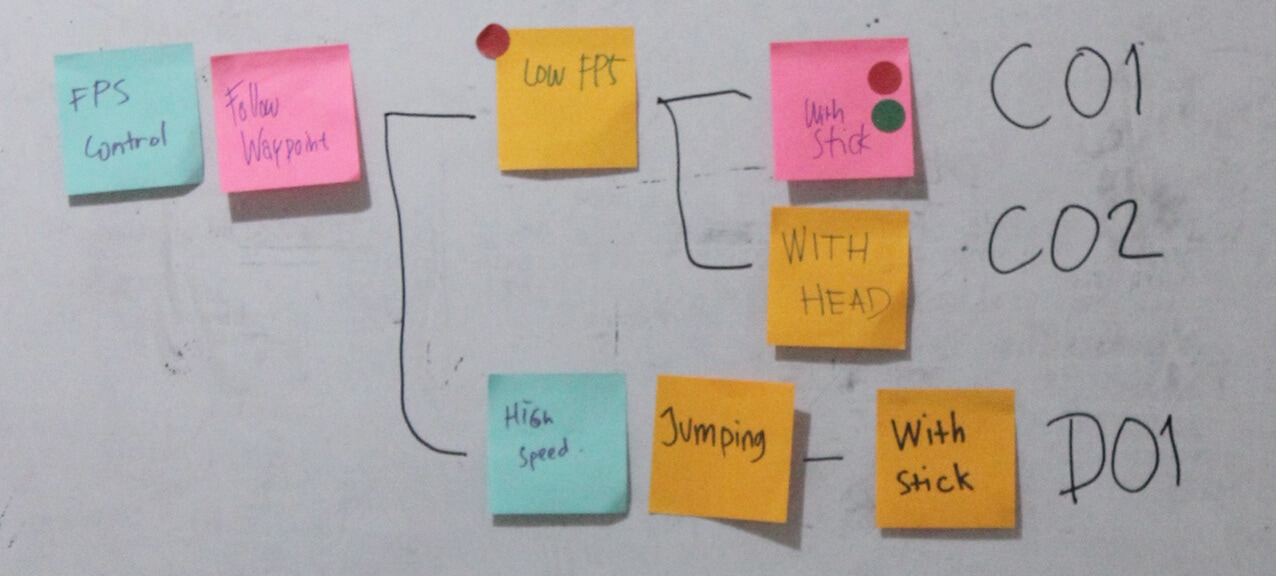 FPS
Control
Follow
Waypoint
Low FPS
With
Stick
C01
WITH
HEAD
C02
High
Speed.
Jumping
With
Stick
D01